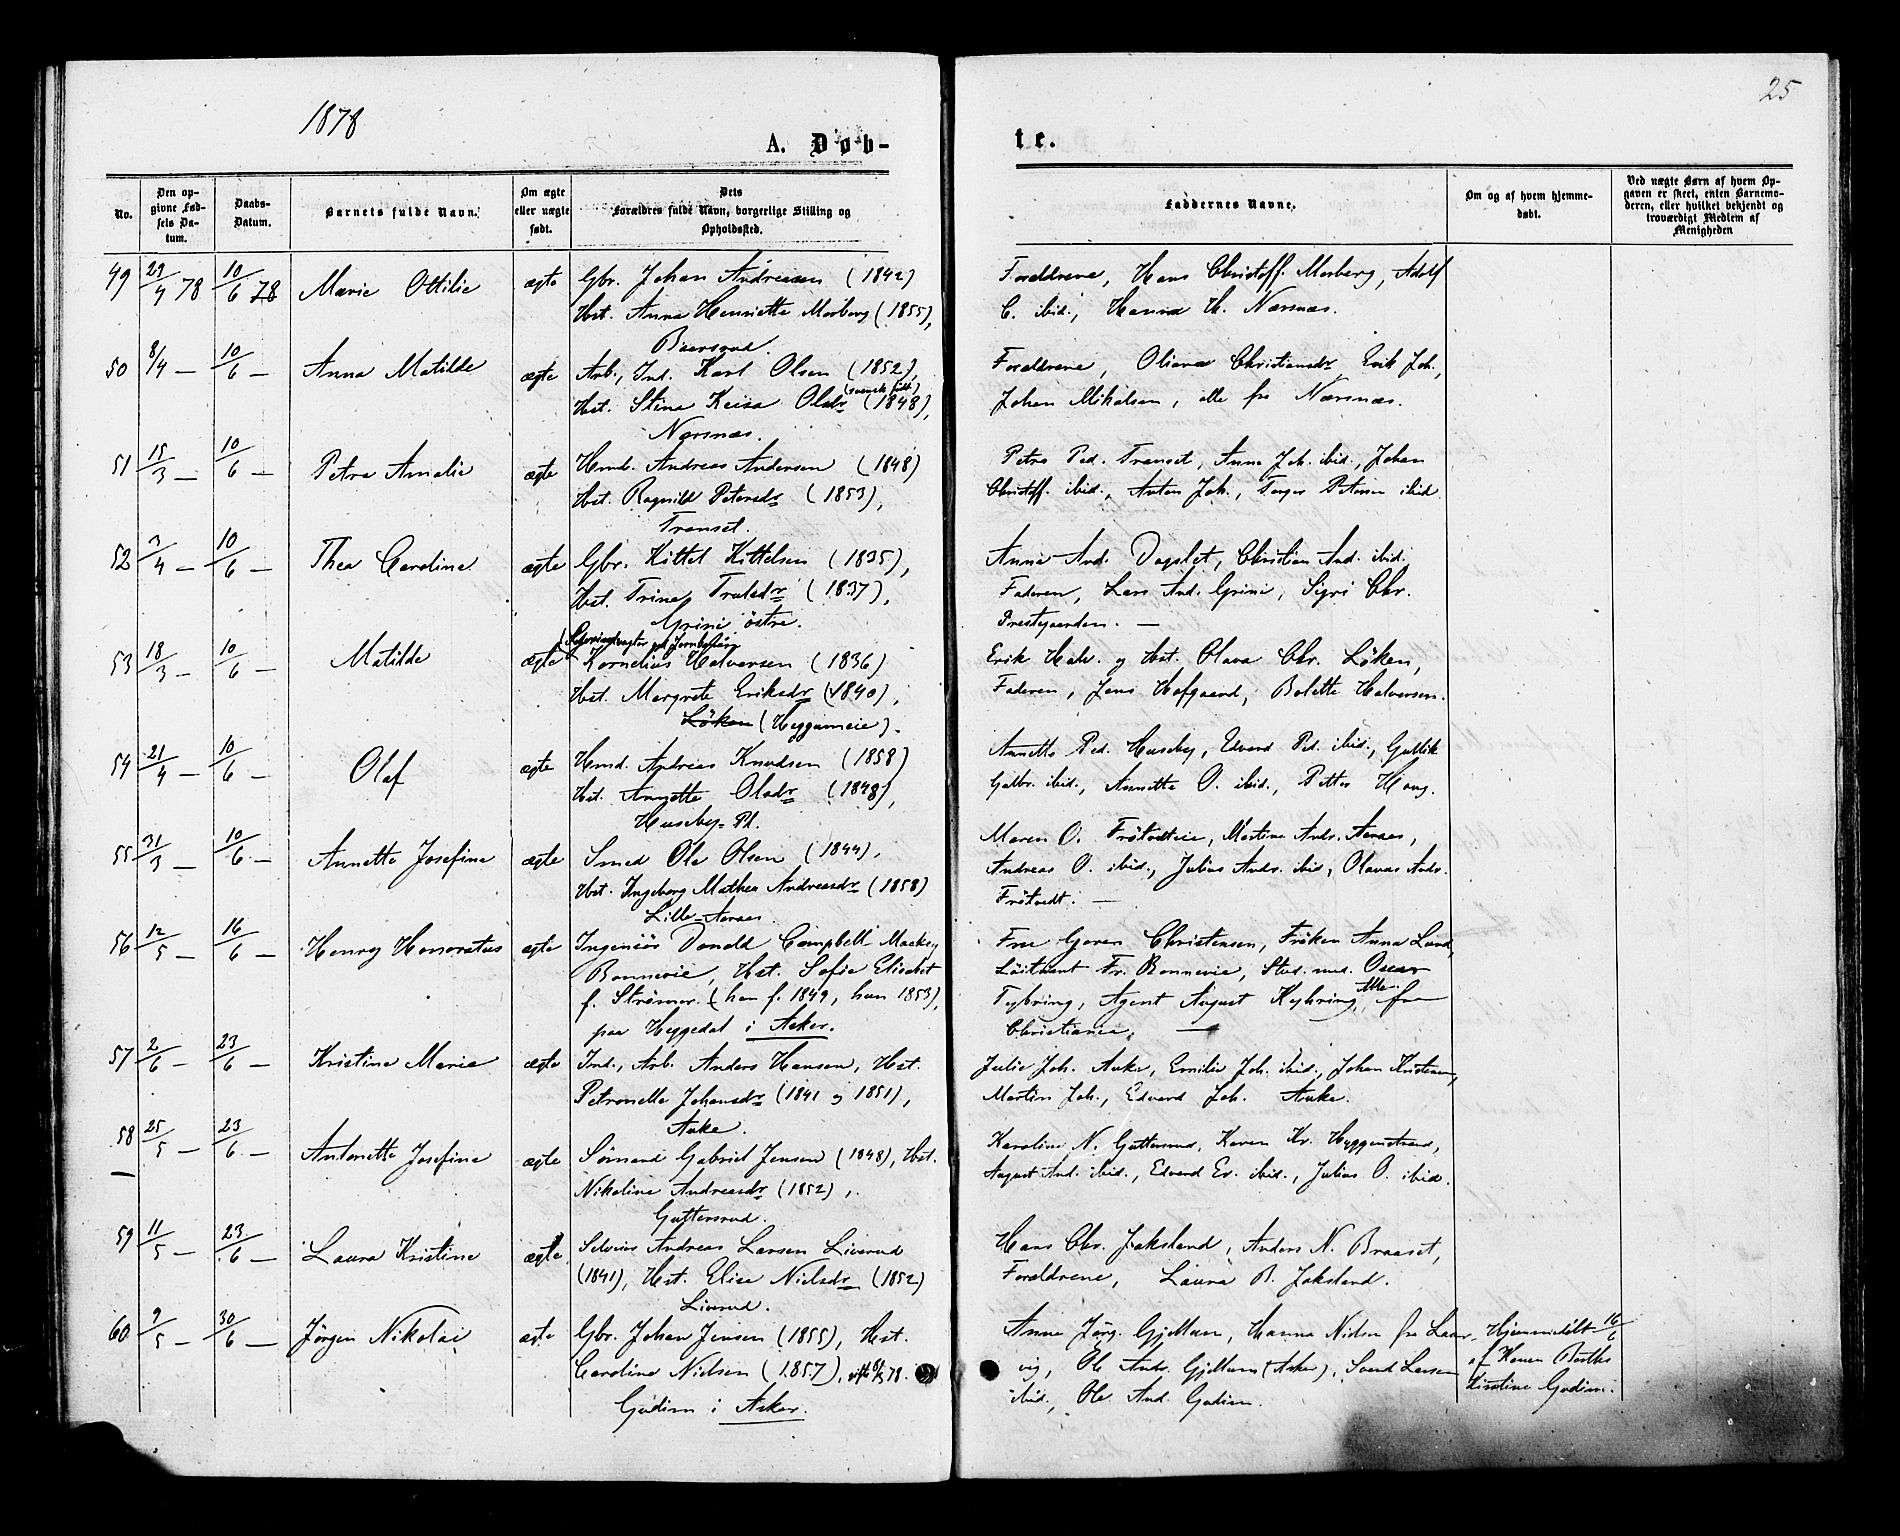 25
1878
A. Døb-
te.
No.
Den op-
givne Fød-
sels Da-
tum.
Daabs-
Datum.
Barnets fulde Navn.
Om ægte
eller uægte
født.
Dets
Forældres fulde Navn, borgerlige Stilling og
Opholdssted.
Faddernes Navne.
Om og af hvem hjemme-
døbt.
Ved uægte Børn af hvem Op-
gaven er skeet, enten Barnemo-
deren, eller hvilket bekjendt og
troværdigt Medlem af
Menigheden
49 29/4 78 10/6 78 Marie Ottilie ægte Gbr. Johan Andreasen (1842)
Hst. Anna Henriette Morberg (1855),
Baarsrud.
Forældrene, Hans Christoff. Morberg, Adolf
C. ibid., Hanna H. Nærsnæs.
50 8/4 — 10/6 — Anna Matilde ægte Arb., Ind. Karl Olsen (1852),
(svensk født)
Hst. Stina Kaisa Olsdr (1848),
Nærsnæs.
Forældrene, Oliana Christiansdr, Erik Joh.,
Johan Mikalsen, alle fra Nærsnæs.
51 15/3 — 10/6 — Petra Amalie ægte Hmd. Andreas Andersen (1848)
Hst. Ragnild Petersdr (1853),
Transet.
Petra Ped. Transet, Anna Joh. ibid., Johan
Christoff. ibid., Anton Joh., Petersen ibid.
52 3/4 — 10/6 — Thea Caroline ægte Gbr. Kittel Kittelsen (1835),
Hst. Trine Trulsdr (1837),
Grini östre.
Anna And. Dagslet, Christian And. ibid.
Faderen, Lars And. Grini, Sigri Chr.
Prestegaarden. —
53 18/3 — 10/6 — Matilde ægte Kornelius Halvorsen (1836)
Hst. Margrete Eriksdr (1840),
Löken (Heggumeie).
Erik Halv. og Hst. Olava Chr. Löken,
Faderen, Jens Hofgaard, Bolette Halvorsen.
54 21/4 — 10/6 — Olaf ægte Hmd. Andreas Knudsen (1858)
Hst. Annette Olsdr (1848),
Huseby-Pl.
Annette Ped. Huseby, Edvard Ped. ibid., Gullik
Gulbr. ibid., Annette O. ibid., Petter Haug.
55 31/3 — 10/6 — Annette Josefine ægte Smed Ole Olsen (1844),
Hst. Ingeborg Mathea Andreasdr (1858)
Lille-Aaraas.
Maren O. Frötvedteie, Martine Andr. Aaraas,
Andreas O. ibid., Julius Andr. ibid., Olavus Andr.
Frötvedt. —
56 12/5 — 16/6 — Henry Honoratus ægte Ingeniör Donald Campbell Mackey
Bonnevie, Hst. Sofie Elisabet
f. Strömer. (han f. 1849, hun 1853),
paa Heggedal i Asker.
Frue Christensen, Fröken Anna Lund,
Löitnant Fr. Bonnevie, Stud. med. Oscar
Tybring, Agent August Kyhring, Alle fra
Christiania. —
57 2/6 — 23/6 — Kristine Marie ægte Ind., Arb. Anders Hansen, Hst.
Petronelle Johansdr (1841 og 1851),
Auke.
Julie Joh. Auke, Emilie Joh. ibid., Johan Kristensen,
Martin Joh., Edvard Joh. Auke.
58 25/5 — 23/6 — Antonette Josefine ægte Sömand Gabriel Jensen (1848), Hst.
Nikoline Andreasdr (1852),
Guttersrud.
Karoline N. Guttersrud, Karen Kr. Hyggenstrand,
August And. ibid., Edvard Er. ibid., Julius O. ibid.
59 11/5 — 23/6 — Laura Kristine ægte Selveier Andreas Larsen Liverud
(1841), Hst. Elise Nielsdr (1852)
Liverud.
Hans Chr. Jaksland, Anders N. Braaset,
Forældrene, Laura B. Jaksland.
60 9/5 — 30/6 — Jørgen Nikolai ægte Gbr. Johan Jensen (1855), Hst.
Caroline Nielsen (1857), 78.
Gudim i Asker.
Anne Jörg. Gjellum, Hanna Nielsen fra Laur-
vig, Ole Andr. Gjellum (Asker), Svend Larsen
ibid., Ole And. Gudim.
Hjemmedöbt 16/6
af Karen Berthe
Kirstine Gudim.